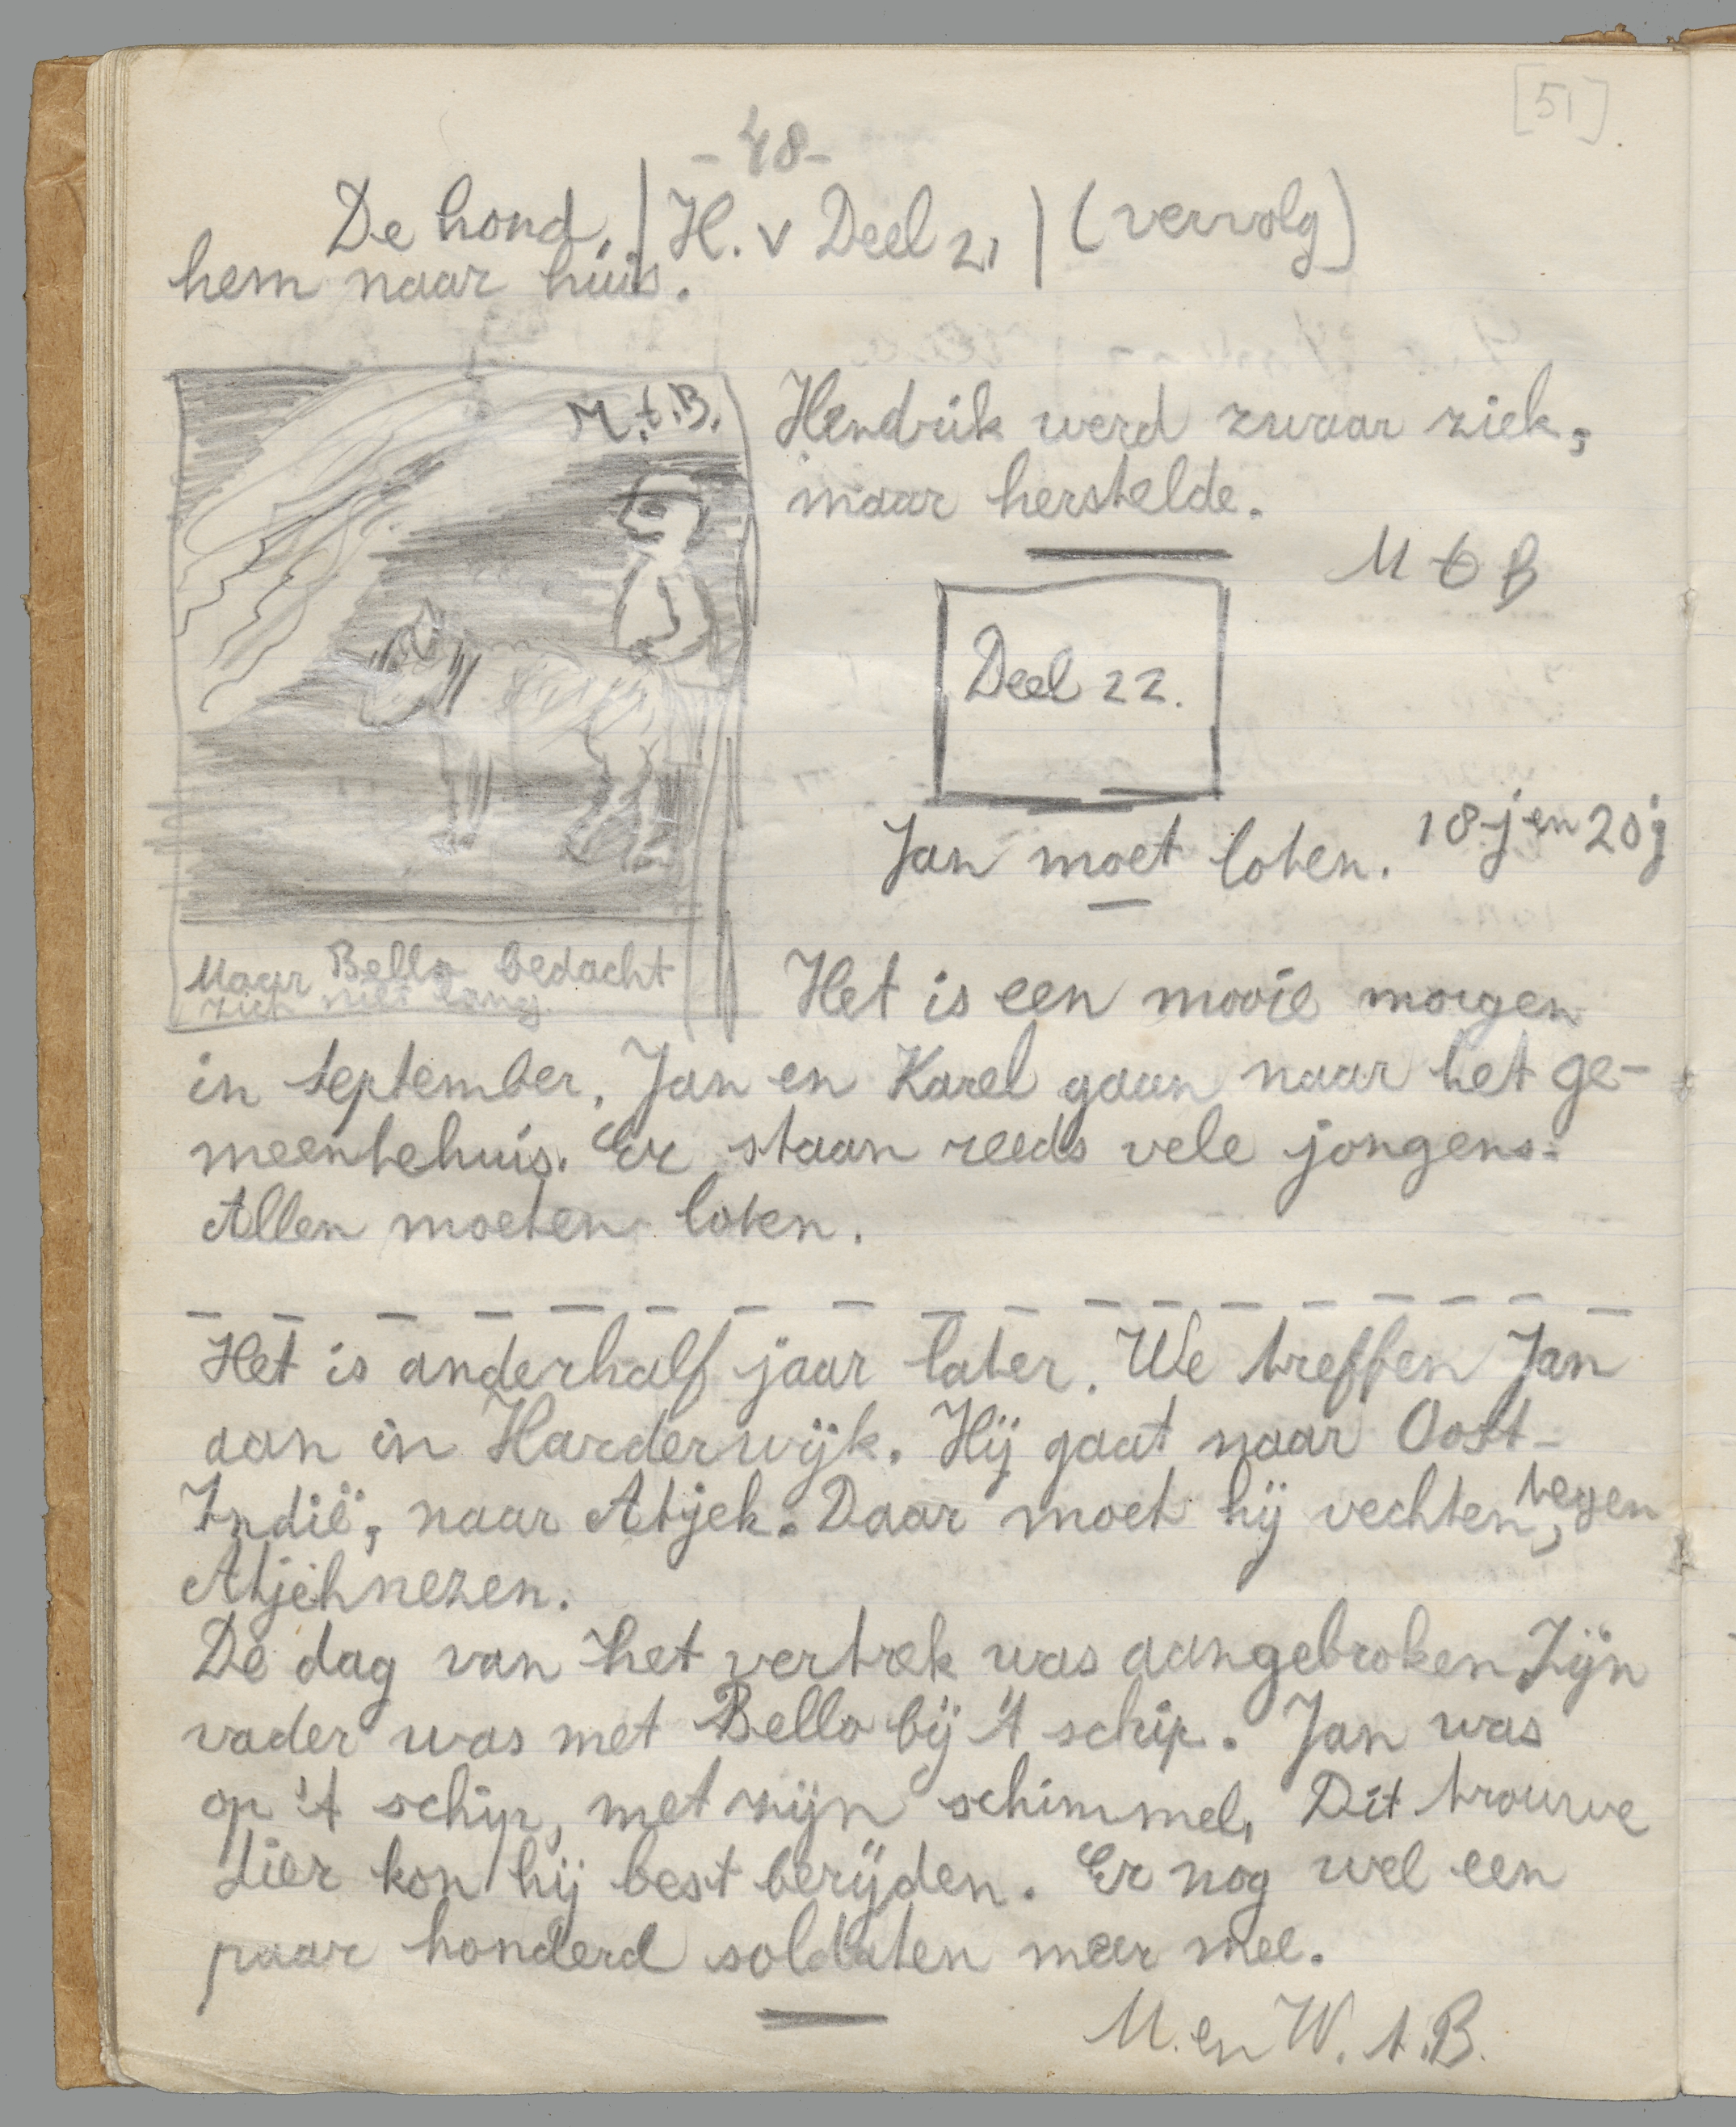 [51]
- 48 -
De hond. | H. v Deel 21 | (vervolg)
hem naar huis.
M.t.B.
Maar Bello bedacht
zich niet lang.
Hendrik werd zwaar ziek,
maar herstelde.
M t B
Deel 22.
Jan moet loten. 18 j en 20 j
Het is een mooie morgen
in September. Jan en Karel gaan naar het ge-
meentehuis. Er staan reeds vele jongens.
Allen moeten loten.
Het is anderhalf jaar later. We treffen Jan
aan in Harderwijk. Hij gaat naar Oost-
Indië, naar Atjeh. Daar moet hij vechten, tegen
Atjehnezen.
De dag van het vertrek was aangebroken Zijn
vader was met Bello bij 't schip. Jan was
op 't schip, met zijn schimmel. Dit trouwe
dier kon hij best berijden. Er nog wel een
paar honderd soldaten meer mee.
M. en W. t. B.